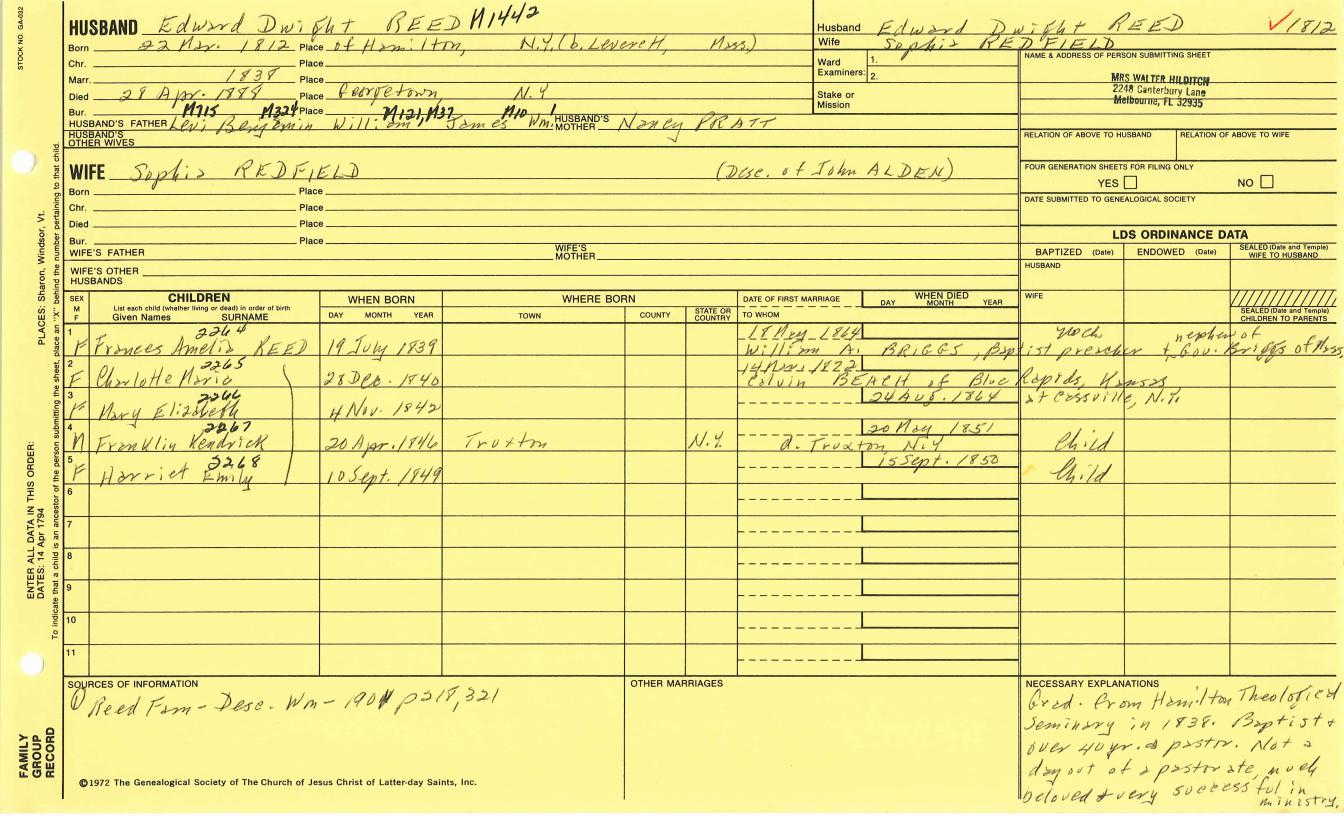 STOCK NO. GA-032
HUSBAND Edward Dwight REED M1442
Born 22 Mar. 1812 Place of Hamilton, N.Y. (b. Leverett, Mass)
Chr. Place
Marr. 1838 Place
Died 28 Apr. 1888 Place Georgetown N.Y
Bur. Place
M715 M324 M121, M37 M10 1
HUSBAND'S FATHER Levi Benjamin William James Wm. HUSBAND'S MOTHER Nancy PRATT
HUSBAND'S OTHER WIVES
Husband Edward Dwight REED ✓1812
Wife Sophia REDFIELD
Ward Examiners: 1.
2.
Stake or Mission
NAME & ADDRESS OF PERSON SUBMITTING SHEET
MRS WALTER HILDITCH
2248 Canterbury Lane
Melbourne, FL 32935
RELATION OF ABOVE TO HUSBAND RELATION OF ABOVE TO WIFE
FOUR GENERATION SHEETS FOR FILING ONLY
YES NO
DATE SUBMITTED TO GENEALOGICAL SOCIETY
WIFE Sophia REDFIELD (Desc. of John ALDEN)
Born Place
Chr. Place
Died Place
Bur. Place
WIFE'S FATHER WIFE'S MOTHER
WIFE'S OTHER HUSBANDS
LDS ORDINANCE DATA
BAPTIZED (Date) ENDOWED (Date) SEALED (Date and Temple) WIFE TO HUSBAND
HUSBAND
WIFE
SEALED (Date and Temple) CHILDREN TO PARENTS
SEX M F
CHILDREN
List each child (whether living or dead) in order of birth
Given Names SURNAME
WHEN BORN
DAY MONTH YEAR
WHERE BORN
TOWN COUNTY STATE OR COUNTRY
DATE OF FIRST MARRIAGE
TO WHOM
WHEN DIED
DAY MONTH YEAR
1 2264 18 May 1864 nephew of
F Frances Amelia REED 19 July 1839 William A. BRIGGS, Baptist preacher + Gov. Briggs of Mass
2 2265
F Charlotte Maria 28 Dec. 1840 Calvin BEACH of Blue Rapids, Kansas
3 2266 24 Aug. 1864 at Cassville, N.Y.
F Mary Elizabeth 4 Nov. 1842
4 2267 20 May 1851
M Franklin Kendrick 20 Apr. 1846 Truxton N.Y. d. Truxton, N.Y Child
5 2268 15 Sept. 1850
F Harriet Emily 10 Sept. 1849 Child
6
7
8
9
10
11
SOURCES OF INFORMATION
① Reed Fam- Desc. Wm- 1901 p218, 321
©1972 The Genealogical Society of The Church of Jesus Christ of Latter-day Saints, Inc.
OTHER MARRIAGES
NECESSARY EXPLANATIONS
Grad. from Hamilton Theological
Seminary in 1838. Baptist +
over 40 yr. a pastor. Not a
day out of a pastorate, much
beloved + very successful in
ministry.
FAMILY GROUP RECORD
ENTER ALL DATA IN THIS ORDER:
DATES: 14 Apr 1794
PLACES: Sharon, Windsor, Vt.
To indicate that a child is an ancestor of the person submitting the sheet, place an "X" behind the number pertaining to that child.